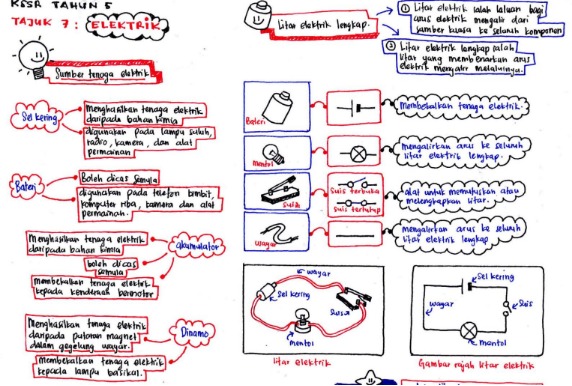 KSSR TAHUN 5
TAJUK 7 : ELEKTRIK
Sumber tenaga elektrik
Sel kering
Menghasilkan tenaga elektrik
daripada bahan kimia
digunakan pada lampu suluh,
radio, kamera, dan alat
permainan
Bateri
Boleh dicas semula
digunakan pada telefon bimbit,
komputer riba, kamera dan alat
permainan.
Menghasilkan tenaga elektrik
daripada bahan kimia
boleh dicas
semula
membekalkan tenaga elektrik
kepada kenderaan bermotor
akumulator
Menghasilkan tenaga elektrik
daripada putaran magnet
dalam gegelung wayar.
Membekalkan tenaga elektrik
kepada lampu basikal.
Dinamo
Litar elektrik lengkap.
1 Litar elektrik ialah laluan bagi
arus elektrik mengalir dari
sumber kuasa ke seluruh komponen
2 Litar elektrik lengkap ialah
litar yang membenarkan arus
elektrik mengalir melaluinya.
Bateri
membekalkan tenaga elektrik.
Mentol
mengalirkan arus ke seluruh
litar elektrik lengkap.
Suis
Suis terbuka
Suis tertutup
alat untuk memutuskan atau
melengkapkan litar.
Wayar
mengalirkan arus ke seluruh
litar elektrik lengkap
wayar
Sel kering
Suis
mentol
litar elektrik
Sel kering
wayar
Suis
mentol
Gambar rajah litar elektrik